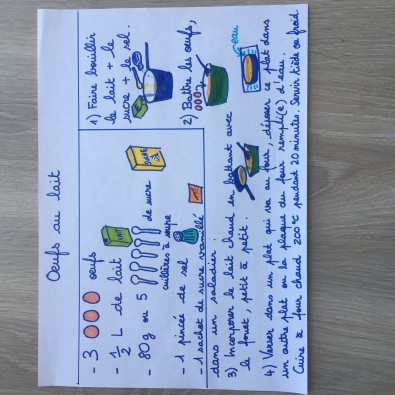 Oeufs au lait
- 3 oeufs
- 1/2 L de lait
- 80g ou 5
cuillères à soupe
de sucre
- 1 pincée de sel
- 1 sachet de sucre vanillé
1) Faire bouillir
le lait + le
sucre + le sel.
2) Battre les oeufs,
dans un saladier.
3) Incorporer le lait chaud en battant avec
le fouet, petit à petit.
4) Verser dans un plat qui va au four, déposer ce plat dans
un autre plat ou la plaque du four rempli(e) d'eau.
Cuire à four chaud 200°C pendant 20 minutes. Servir tiède ou froid.
eau
LAIT
SUCRE